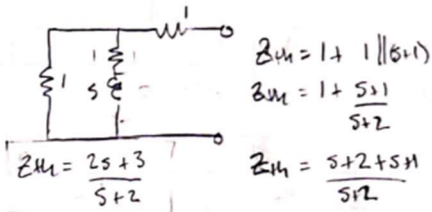 1
1
1
s
Zth = 1 + 1||(s+1)
Zth = 1 + (s+1)/(s+2)
Zth = (s+2+s+1)/(s+2)
Zth = (2s+3)/(s+2)